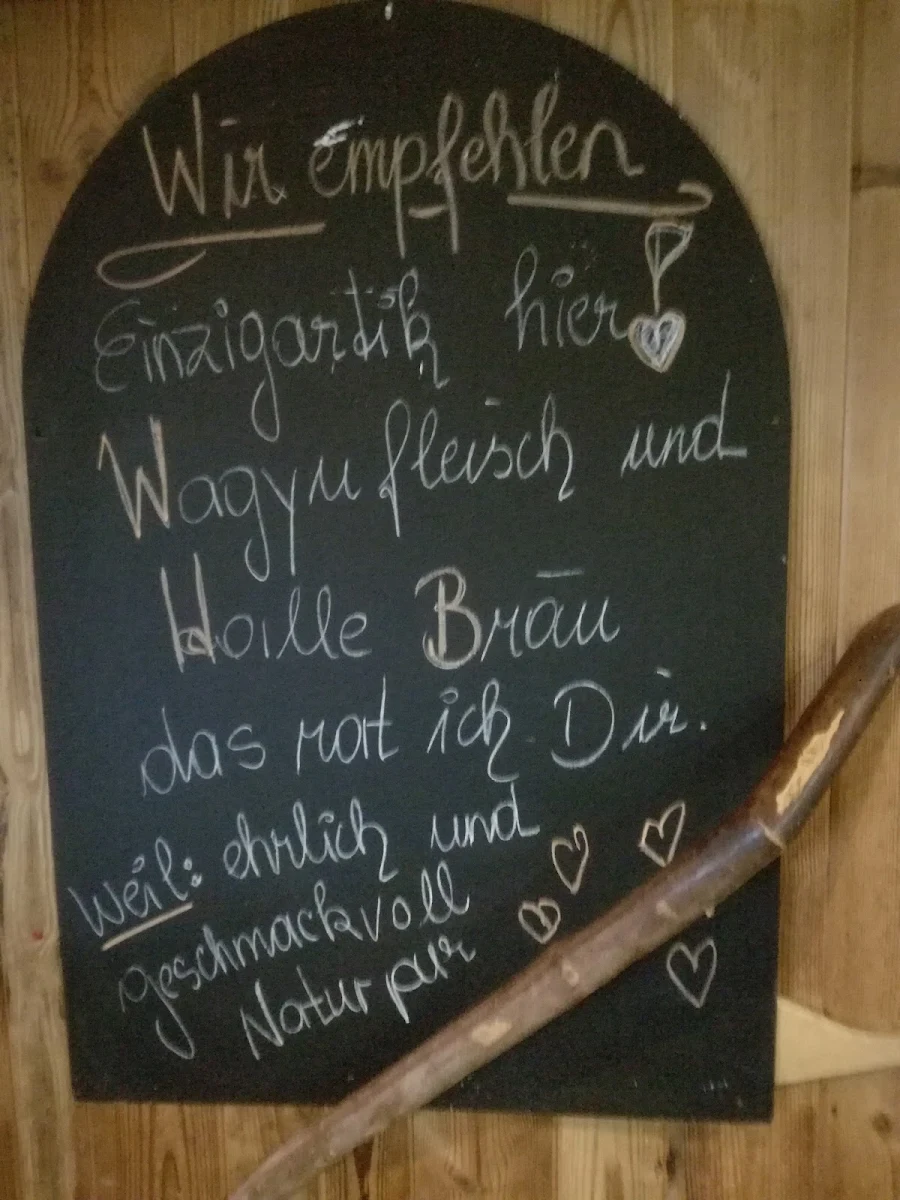 Wir empfehlen
Einzigartik hier!
Wagyufleisch und
Hoille Bräu
das rat ich Dir.
Weil: ehrlich und
geschmackvoll
Natur pur